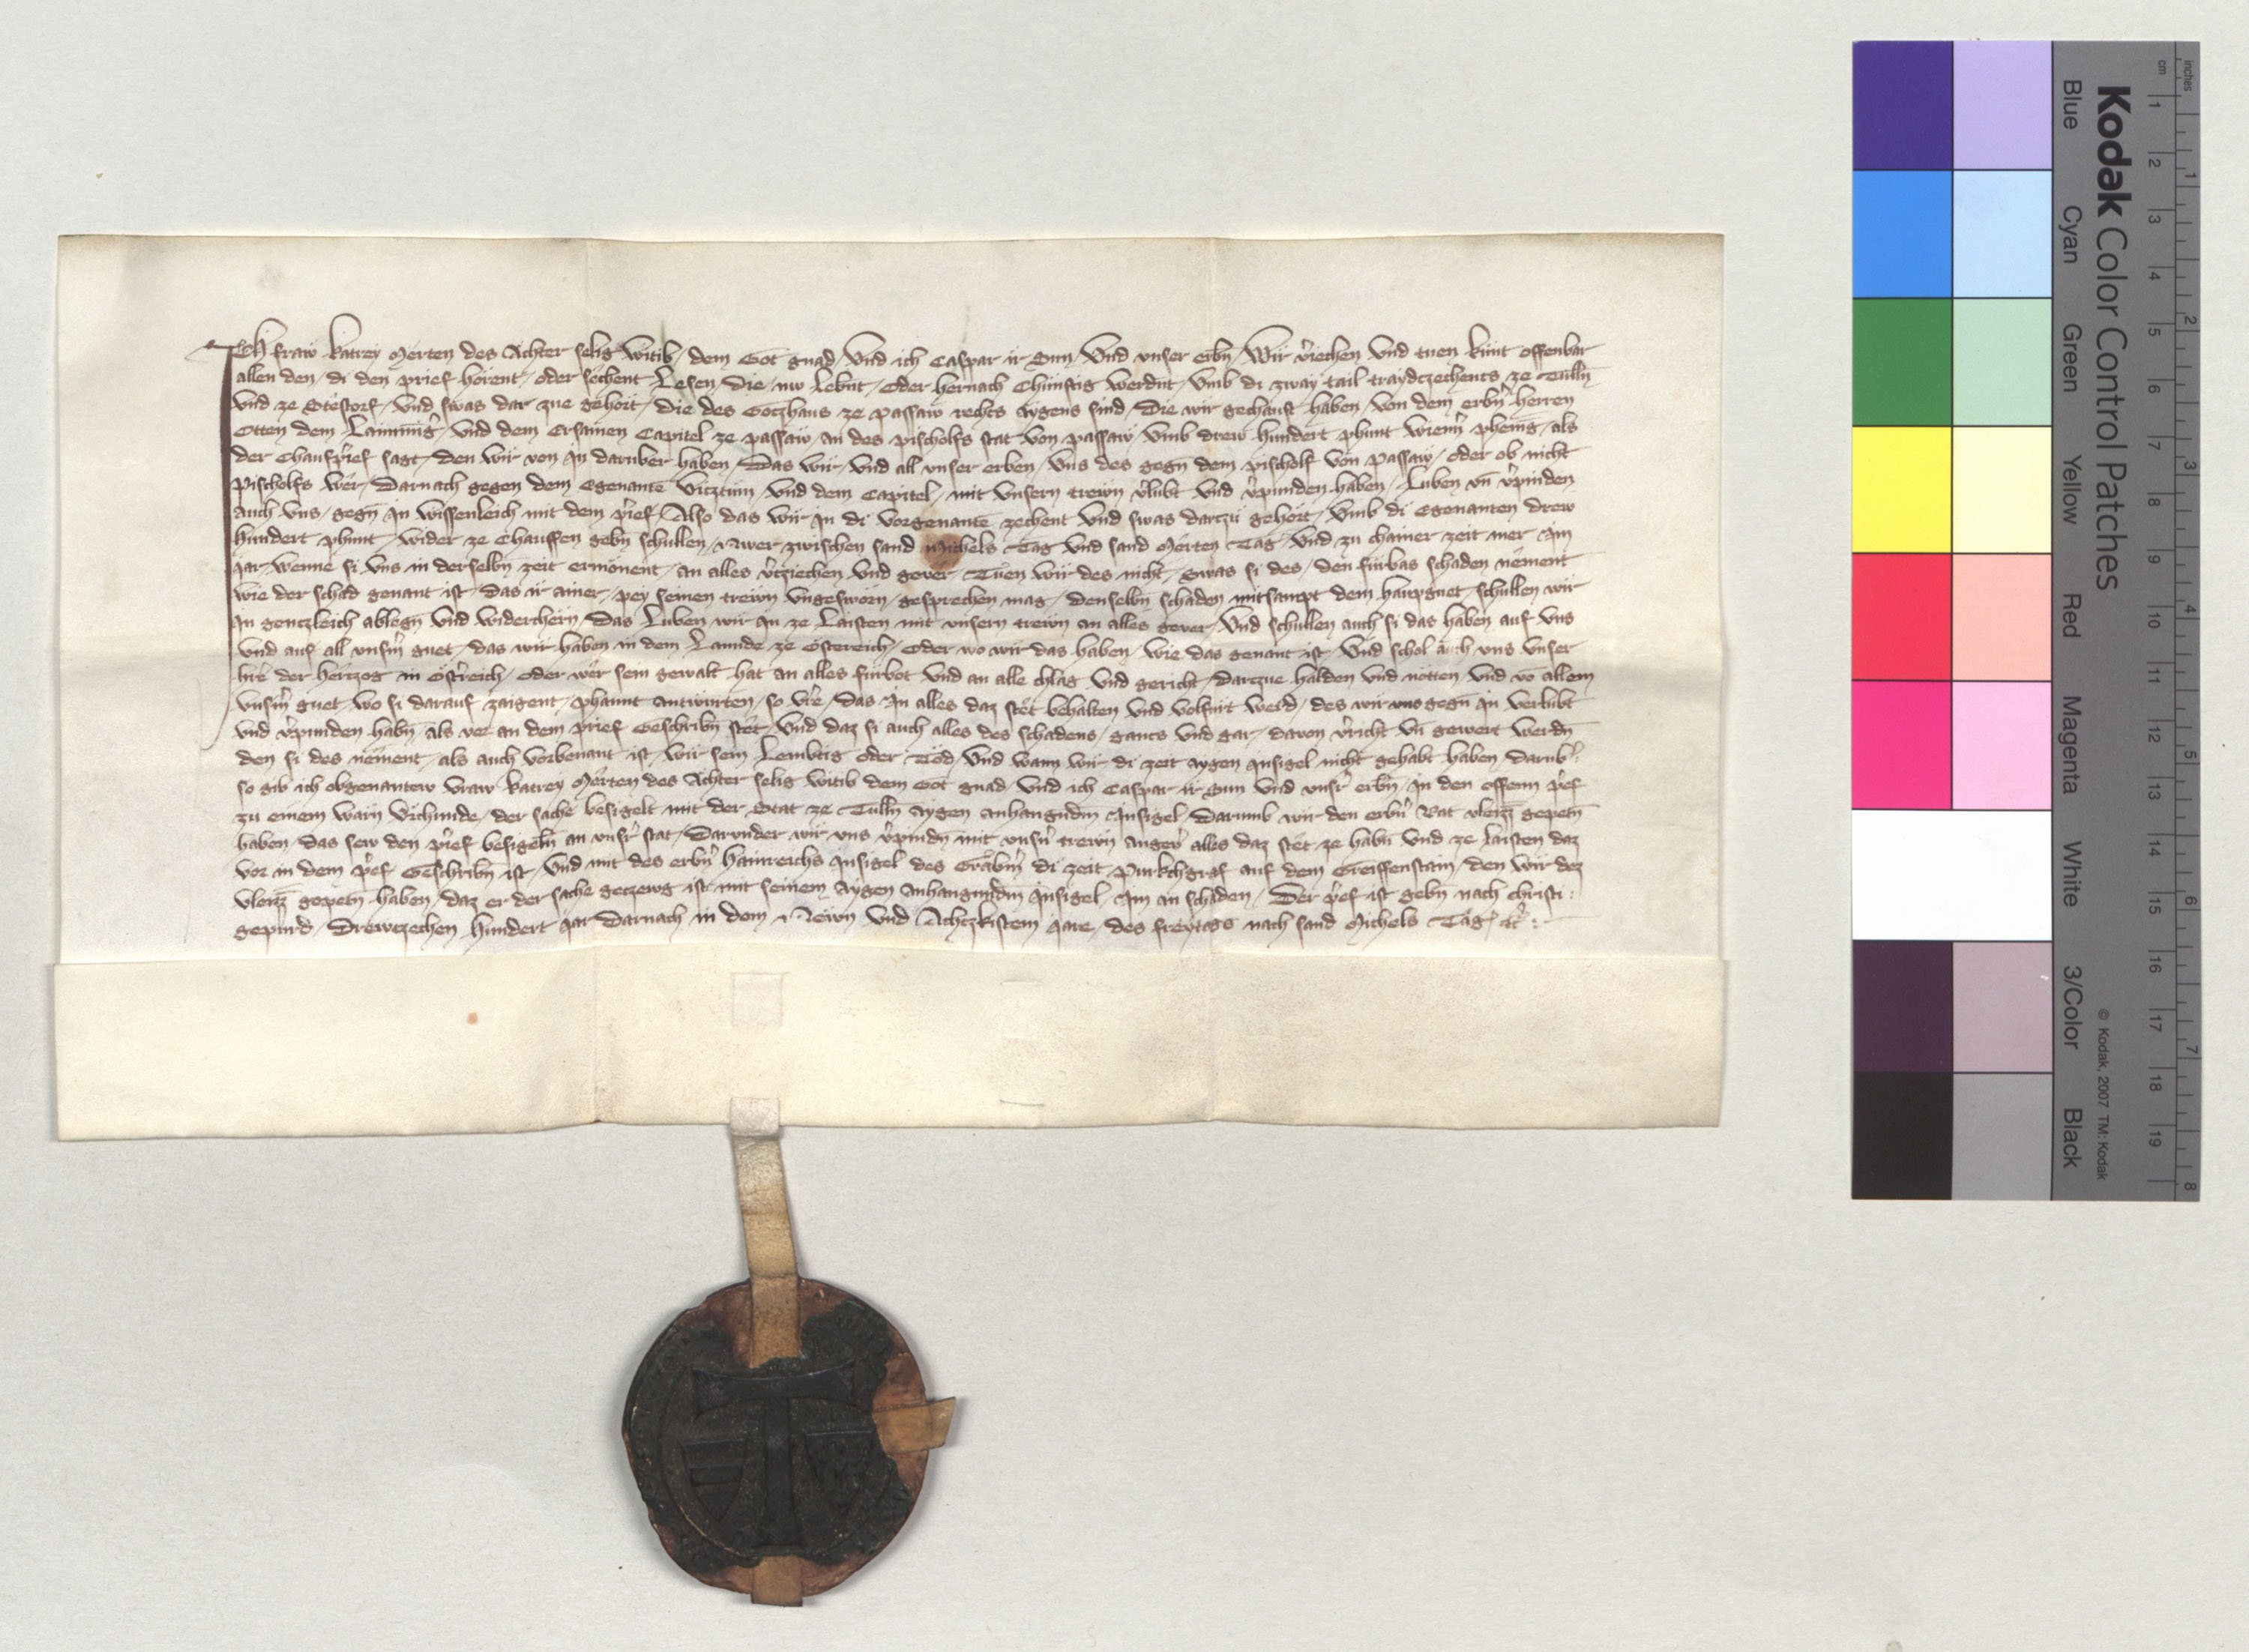 Ich fraw Katrey Mérten des Achter selig witib / dem Got gnad / Vnd ich Caspar ir Sun / Vnd vnser erbn / Wir v̉iechen Vnd tuen kunt offenbar
allen den / di den prief hörent / oder sechent Lesen / die nw lebnt / Oder hernach Chünftig werdnt / Vmb di zway tail traydtzechents ze Tulln̄
Vnd ze / Vnd swas dar zue gehört / die des Gotzhaus ze passaw rechts aygens sind / die wir gechauft haben / von dem erbn̉ herren
Otten dem / Vnd dem Ersamen Capitel ze passaw / an des pischolfs stat von passaw / Vmb drew hundert phunt wienn̉ phenig / als
der Chaufprief sagt / den wir von in daruber haben / Das wir / Vnd all vnser erben / Vns des gegn̄ dem pischolf von passaw / oder ob nicht
pischolfs wér / Darnach gegen dem Egenante Vitztum / Vnd dem Capitel / mit Vnsern trewn v̉lubt Vnd v̉punden haben / Luben vn̄ v̉pinden
auch Vns / gegn̄ in wissenleich mit dem p̉ief / Also das wir in di Vorgenante zechent Vnd swas dartzu gehört / Vmb di Egenanten drew
hundert phunt / wider ze Chauffen gebn̄ schullen / Nwer zwischen sand Michels Tag Vnd sand Mérten Tag / Vnd zu chainer zeit mer Im
jar / wenne si Vns in derselbn̄ zeit ermonent / an alles v̉tziechen Vnd gever / Tuen wir des nicht / Swas si des / den fürbas schaden nement
wie der schad genant ist / das ir ainer / pey seinen trewn Vngesworn / gesprechen mag / denselbn̄ schaden mitsampt dem haupguet / schullen wir
in gentzleich ablegn̄ Vnd widerchern / das Luben wir in ze Laisten mit vnsern trewn an alles gever / Vnd schullen auch si das haben auf Vns
Vnd auf all vnsm̉ guet / das wir haben in dem Lannde ze Östereich / Oder wo wir das haben / wie das genant ist / Vnd schol auch vns Vnser
hr̉e der hertzog in Öst̉reich / Oder wer sein gewalt hat an alles fürbot Vnd an alle chlag Vnd gericht / dartzue halden Vnd nötten / Vnd vō allem
vnsm̉ guet / wo si darauf zaigent / phannt antwurten / so v̉re / das in alles daz stét behalten Vnd volfurt werd / des wir vns gegn̄ in verlubt
Vnd v̉punden habn̄ / als vor an dem prief Geschribn̄ stét / Vnd daz si auch alles des schadens / gancz Vnd gar / davon v̉richt vn̄ gewert werdn̄
den si des nement / als auch Vorbenant ist / wir sein Lembtig oder Töd / Vnd wann wir di zeit aygen Insigel nicht gehabt haben / darub̉ :
so gib ich obgenantew Vraw Katrey Mérten des Achter selig witib dem Got gnad / Vnd ich Caspar ir Sun Vnd vnsr̉ erbn̄ / in den offenn p̉ief
zu einem warn Vrchunde / der sache besigelt mit der Stat ze Tulln̄ aygen anhangundm̄ Insigel / Darumb wir den erbn̉ Rat vleizz̄ gepetn̄
haben / das sew den p̉ief besigeltn̄ an vnsr̉ stat / Darunder wir vns v̉pindn̄ mit vnsn̉ trewn angev̉ alles daz stét ze habn̄ Vnd ze laisten daz
vor in dem p̉ief Geschribn̄ ist / Vnd mit des erbn̉ hainreichs Insigel des Grabm̉ di zeit purkchgraf auf dem Greiffenstain / den wir dez
vleizz̄ gepetn̄ haben / daz er der sache getzewg ist mit seinem aygen anhangundm̄ Insigel / Im an schaden / Der p̉ief ist gebn̄ nach christi :
gepurd / Drewtzechen hundert jar Darnach in dem Newn Vnd Achtzkistem jare / des freytags nach sand Michels Tag / etc̉ :
Kodak Color Control Patches
Blue
Cyan
Green
Yellow
Red
Magenta
White
3/Color
Black
© Kodak, 2007 TM: Kodak
cm
1 2 3 4 5 6 7 8 9 10 11 12 13 14 15 16 17 18 19
inches
1 2 3 4 5 6 7 8